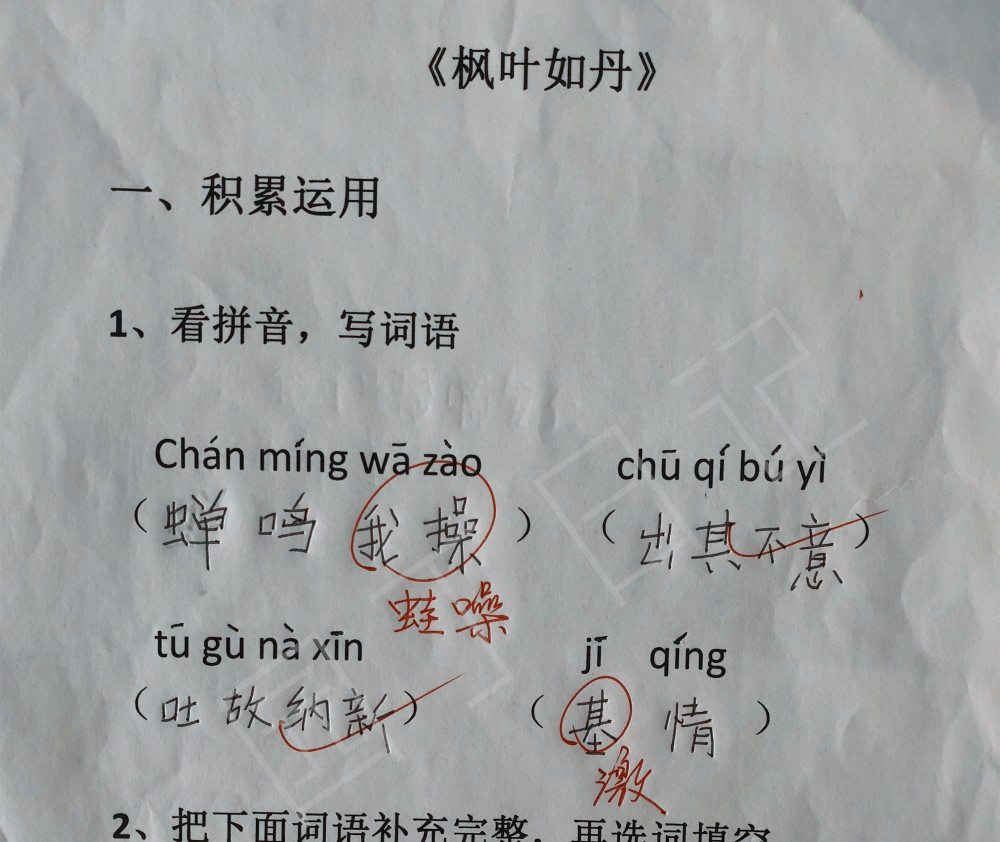 《枫叶如丹》
一、积累运用
1、看拼音，写词语
Chán míng wā zào chū qí bú yì
（蝉鸣我操）（出其不意）
蛙噪
tū gù nà xīn jī qíng
（吐故纳新）（基情）
激
2、把下面词语补充完整，再选词填空